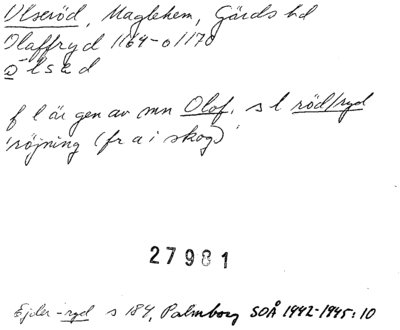 Olseröd, Maglehem, Gärds hd
Olaffryd 1164-o1170
o-lsed
f l är gen av mn Olof. s l röd/ryd
'röjning (fr a i skog)'
27981
Ejder -ryd s 184, Palmborg SOÅ 1942-1945:10